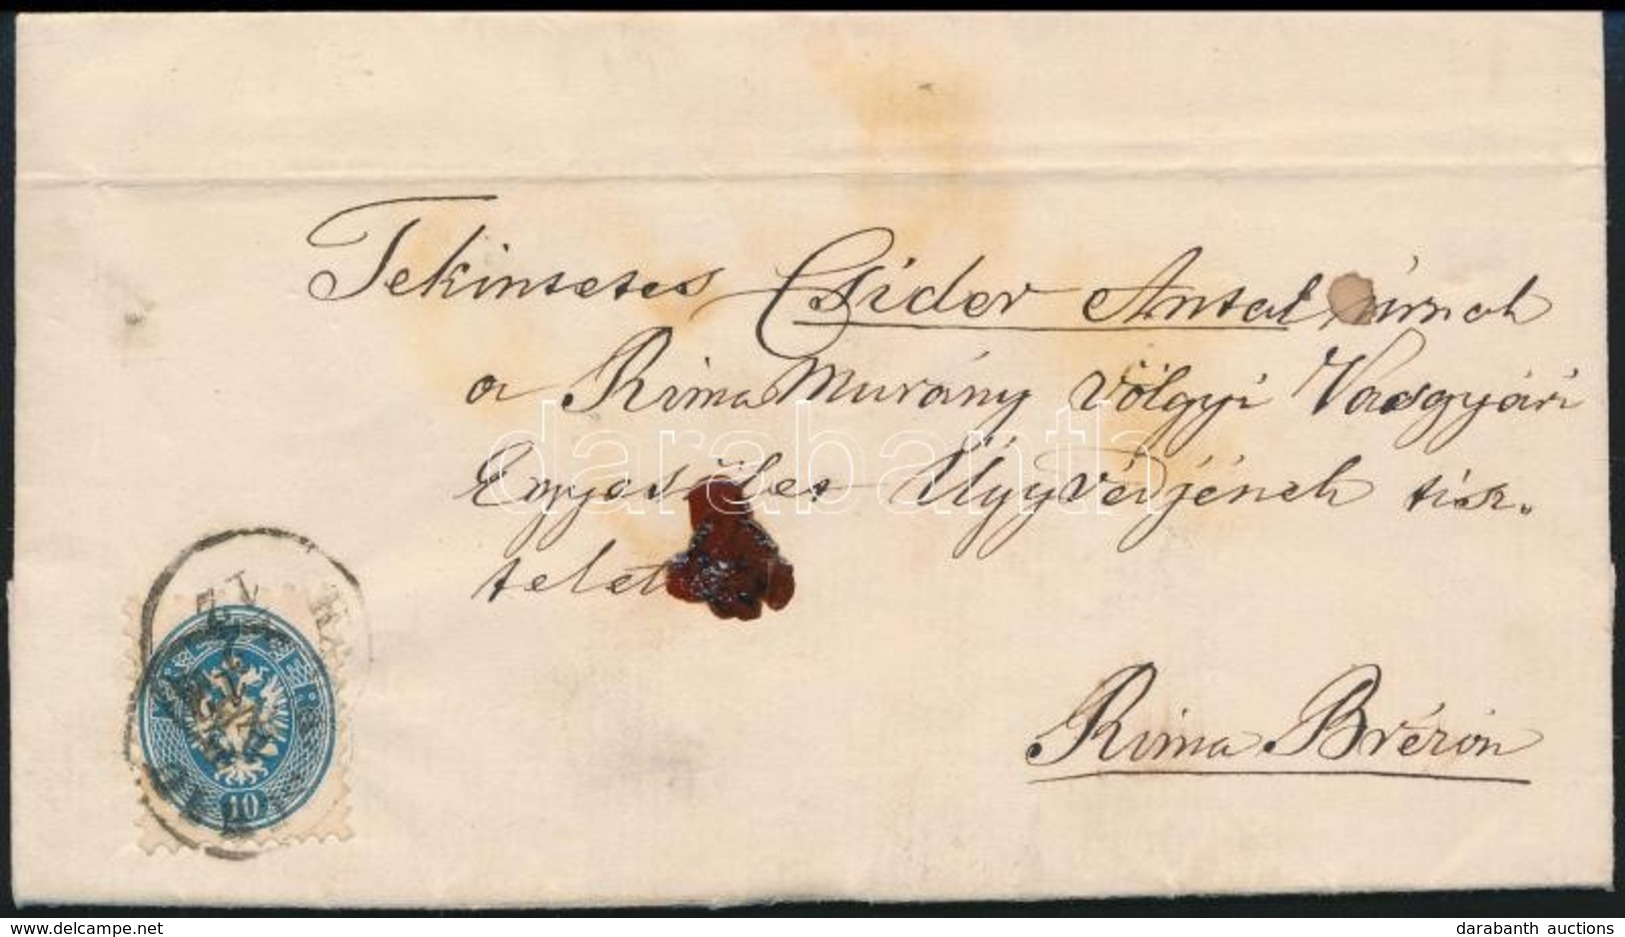 Tekintetes Csider Antal úrnak
a Rima Murány Völgyi Vasgyári
Egyesület Ügyvédjének tisz„
telet
Rima Brézón
10
darabanth
www.delcampe.net
darabanth auctions